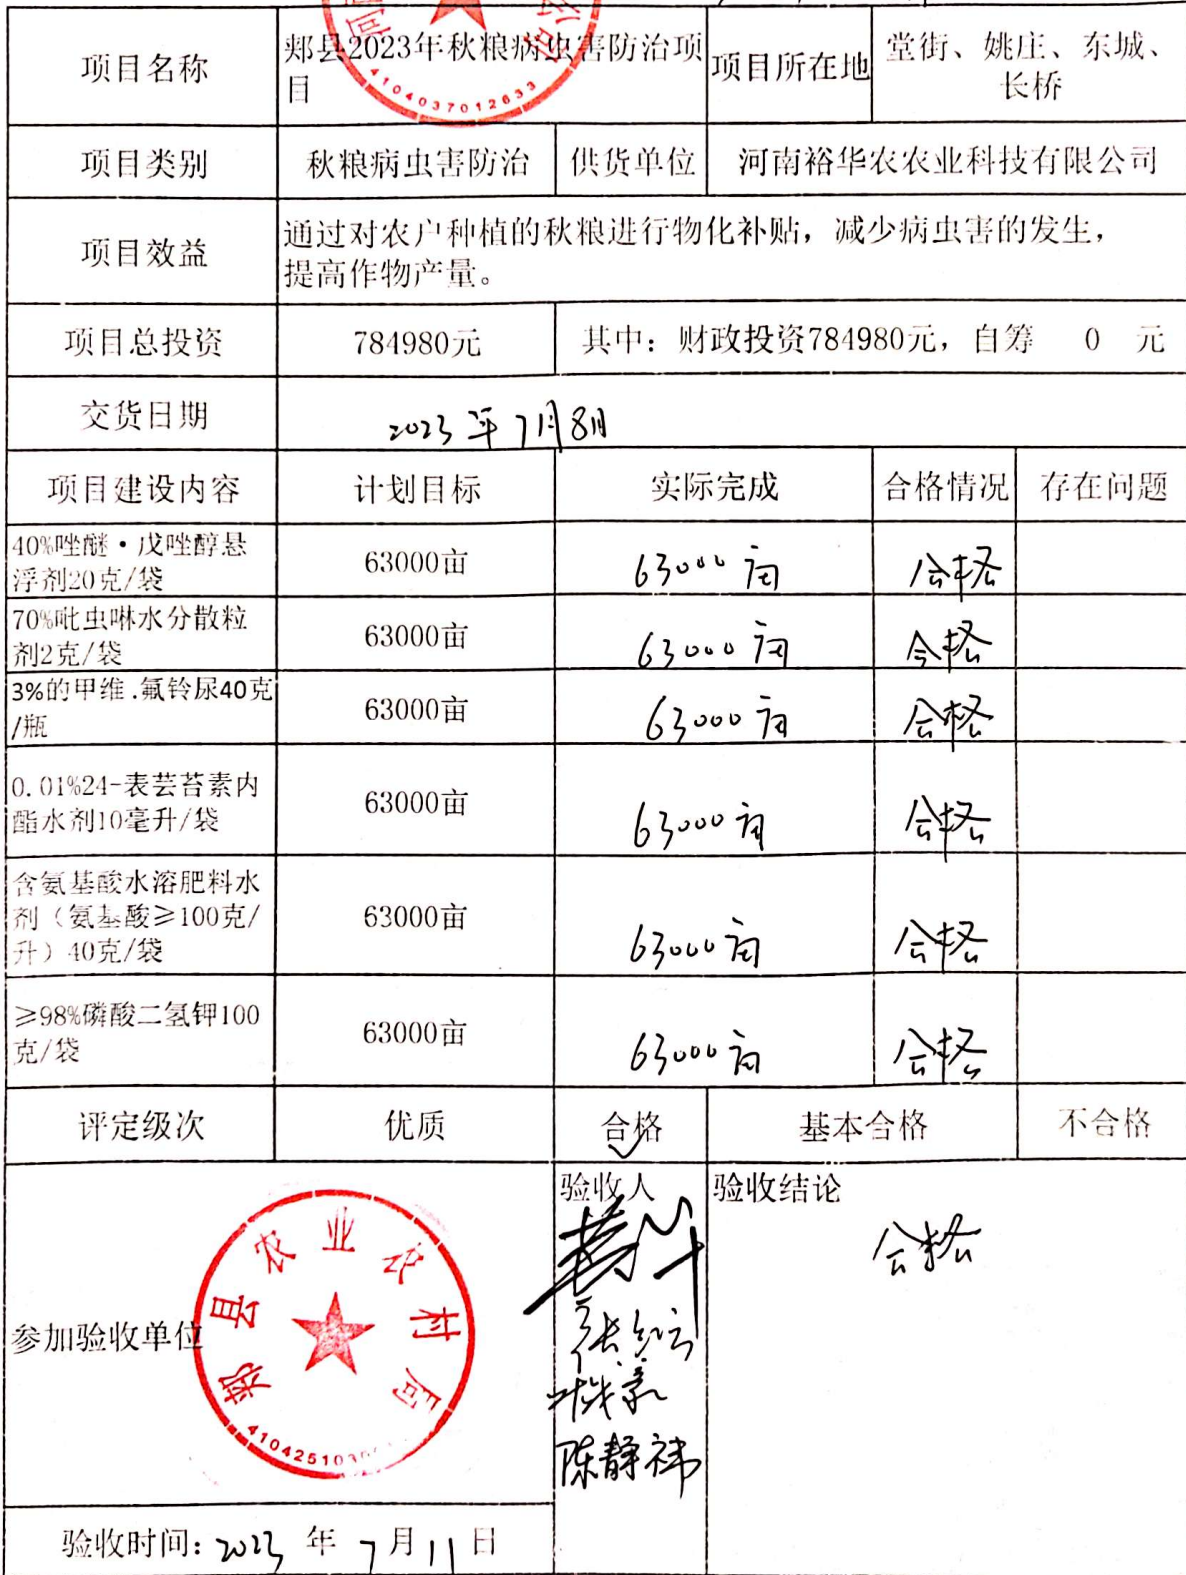 4104037012633
项目名称
郏县2023年秋粮病虫害防治项
目
项目所在地
堂街、姚庄、东城、
长桥
项目类别
秋粮病虫害防治
供货单位
河南裕华农农业科技有限公司
项目效益
通过对农户种植的秋粮进行物化补贴，减少病虫害的发生，
提高作物产量。
项目总投资
784980元
其中：财政投资784980元，自筹 0 元
交货日期
2023年7月8日
项目建设内容 计划目标 实际完成 合格情况 存在问题
40%唑醚·戊唑醇悬
浮剂20克/袋
63000亩 63000亩 合格
70%吡虫啉水分散粒
剂2克/袋
63000亩 63000亩 合格
3%的甲维.氟铃尿40克
/瓶
63000亩 63000亩 合格
0.01%24-表芸苔素内
酯水剂10毫升/袋
63000亩 63000亩 合格
含氨基酸水溶肥料水
剂（氨基酸≥100克/
升）40克/袋
63000亩 63000亩 合格
≥98%磷酸二氢钾100
克/袋
63000亩 63000亩 合格
评定级次 优质 合格 基本合格 不合格
参加验收单位
郏县农业农村局
验收人
陈静祎
验收结论
合格
验收时间：2023 年 7 月 11 日